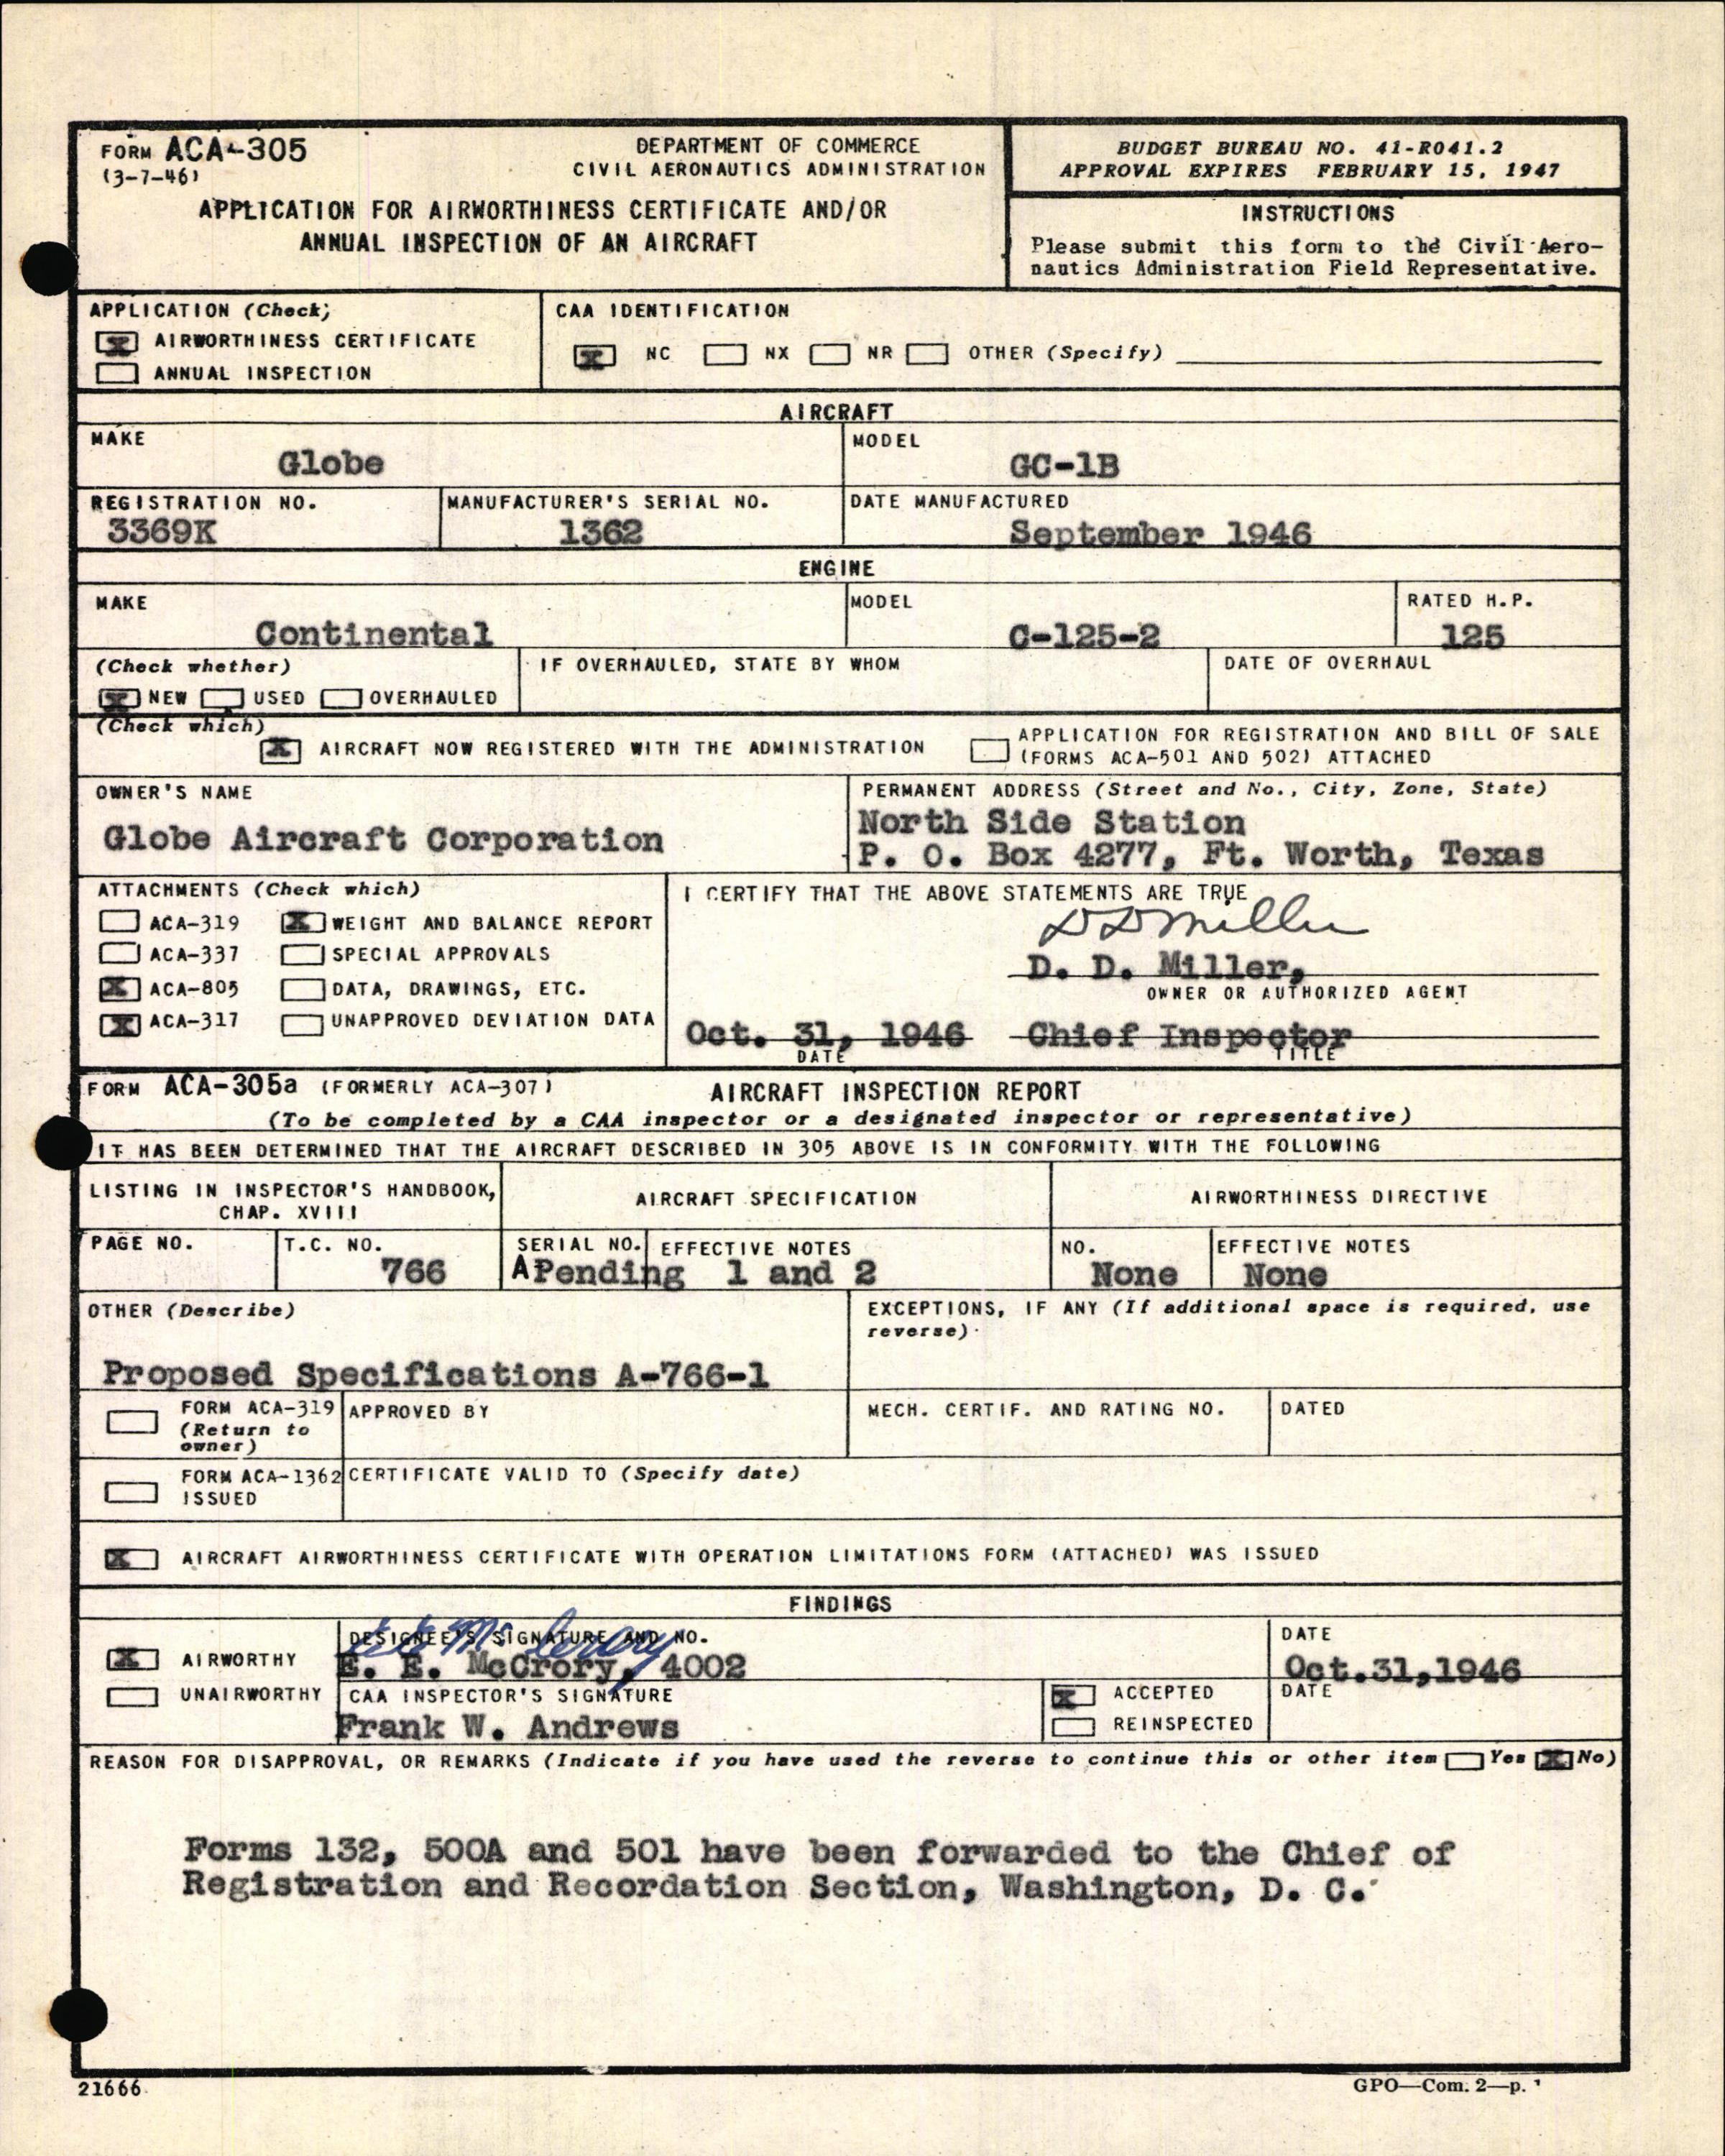 FORM ACA-305
(3-7-46)
DEPARTMENT OF COMMERCE
CIVIL AERONAUTICS ADMINISTRATION
APPLICATION FOR AIRWORTHINESS CERTIFICATE AND/OR
ANNUAL INSPECTION OF AN AIRCRAFT
BUDGET BUREAU NO. 41-R041.2
APPROVAL EXPIRES FEBRUARY 15, 1947
INSTRUCTIONS
Please submit this form to the Civil Aero-
nautics Administration Field Representative.
APPLICATION (Check)
X AIRWORTHINESS CERTIFICATE
ANNUAL INSPECTION
CAA IDENTIFICATION
X NC NX NR OTHER (Specify)
AIRCRAFT
MAKE
Globe
MODEL
GC-1B
REGISTRATION NO.
3369K
MANUFACTURER'S SERIAL NO.
1362
DATE MANUFACTURED
September 1946
ENGINE
MAKE
Continental
MODEL
C-125-2
RATED H.P.
125
(Check whether)
X NEW USED OVERHAULED
IF OVERHAULED, STATE BY WHOM
DATE OF OVERHAUL
(Check which)
X AIRCRAFT NOW REGISTERED WITH THE ADMINISTRATION
APPLICATION FOR REGISTRATION AND BILL OF SALE
(FORMS ACA-501 AND 502) ATTACHED
OWNER'S NAME
Globe Aircraft Corporation
PERMANENT ADDRESS (Street and No., City, Zone, State)
North Side Station
P. O. Box 4277, Ft. Worth, Texas
ATTACHMENTS (Check which)
ACA-319 X WEIGHT AND BALANCE REPORT
ACA-337 SPECIAL APPROVALS
X ACA-805 DATA, DRAWINGS, ETC.
X ACA-317 UNAPPROVED DEVIATION DATA
I CERTIFY THAT THE ABOVE STATEMENTS ARE TRUE
D D Miller
D. D. Miller,
OWNER OR AUTHORIZED AGENT
Oct. 31, 1946 Chief Inspector
DATE TITLE
FORM ACA-305a (FORMERLY ACA-307) AIRCRAFT INSPECTION REPORT
(To be completed by a CAA inspector or a designated inspector or representative)
IT HAS BEEN DETERMINED THAT THE AIRCRAFT DESCRIBED IN 305 ABOVE IS IN CONFORMITY WITH THE FOLLOWING
LISTING IN INSPECTOR'S HANDBOOK,
CHAP. XVIII
AIRCRAFT SPECIFICATION
AIRWORTHINESS DIRECTIVE
PAGE NO.
T.C. NO.
766
SERIAL NO. EFFECTIVE NOTES
APending 1 and 2
NO.
None
EFFECTIVE NOTES
None
OTHER (Describe)
Proposed Specifications A-766-1
EXCEPTIONS, IF ANY (If additional space is required, use
reverse)
FORM ACA-319
(Return to
owner)
APPROVED BY
MECH. CERTIF. AND RATING NO.
DATED
FORM ACA-1362
ISSUED
CERTIFICATE VALID TO (Specify date)
X AIRCRAFT AIRWORTHINESS CERTIFICATE WITH OPERATION LIMITATIONS FORM (ATTACHED) WAS ISSUED
FINDINGS
X AIRWORTHY
UNAIRWORTHY
DESIGNEE'S SIGNATURE AND NO.
E E McCrory
E. E. McCrory, 4002
DATE
Oct.31,1946
CAA INSPECTOR'S SIGNATURE
Frank W. Andrews
X ACCEPTED
REINSPECTED
DATE
REASON FOR DISAPPROVAL, OR REMARKS (Indicate if you have used the reverse to continue this or other item Yes X No)
Forms 132, 500A and 501 have been forwarded to the Chief of
Registration and Recordation Section, Washington, D. C.
21666
GPO—Com. 2—p.